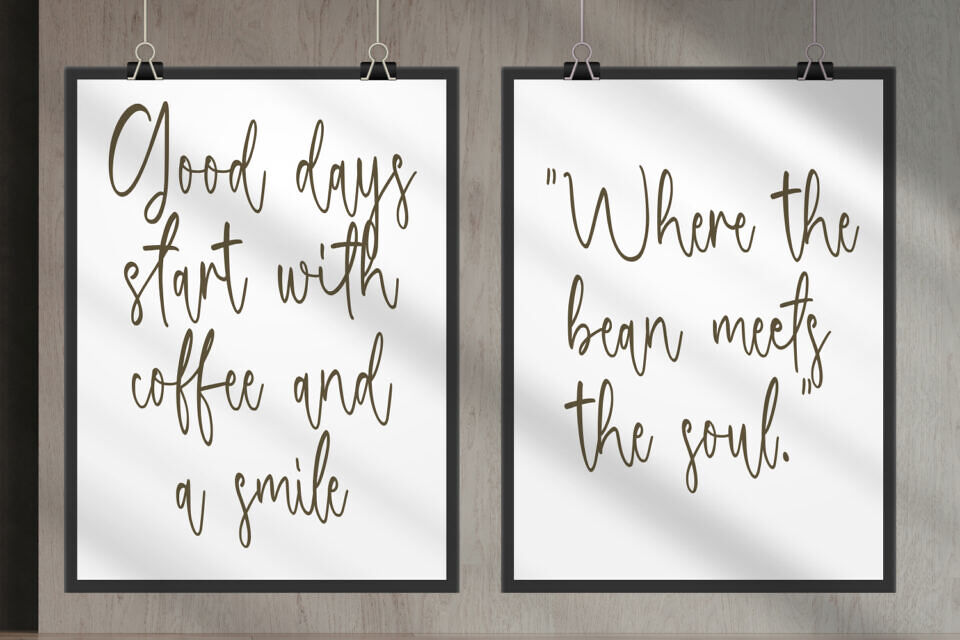 Good days
start with
coffee and
a smile
"Where the
bean meets
the soul."